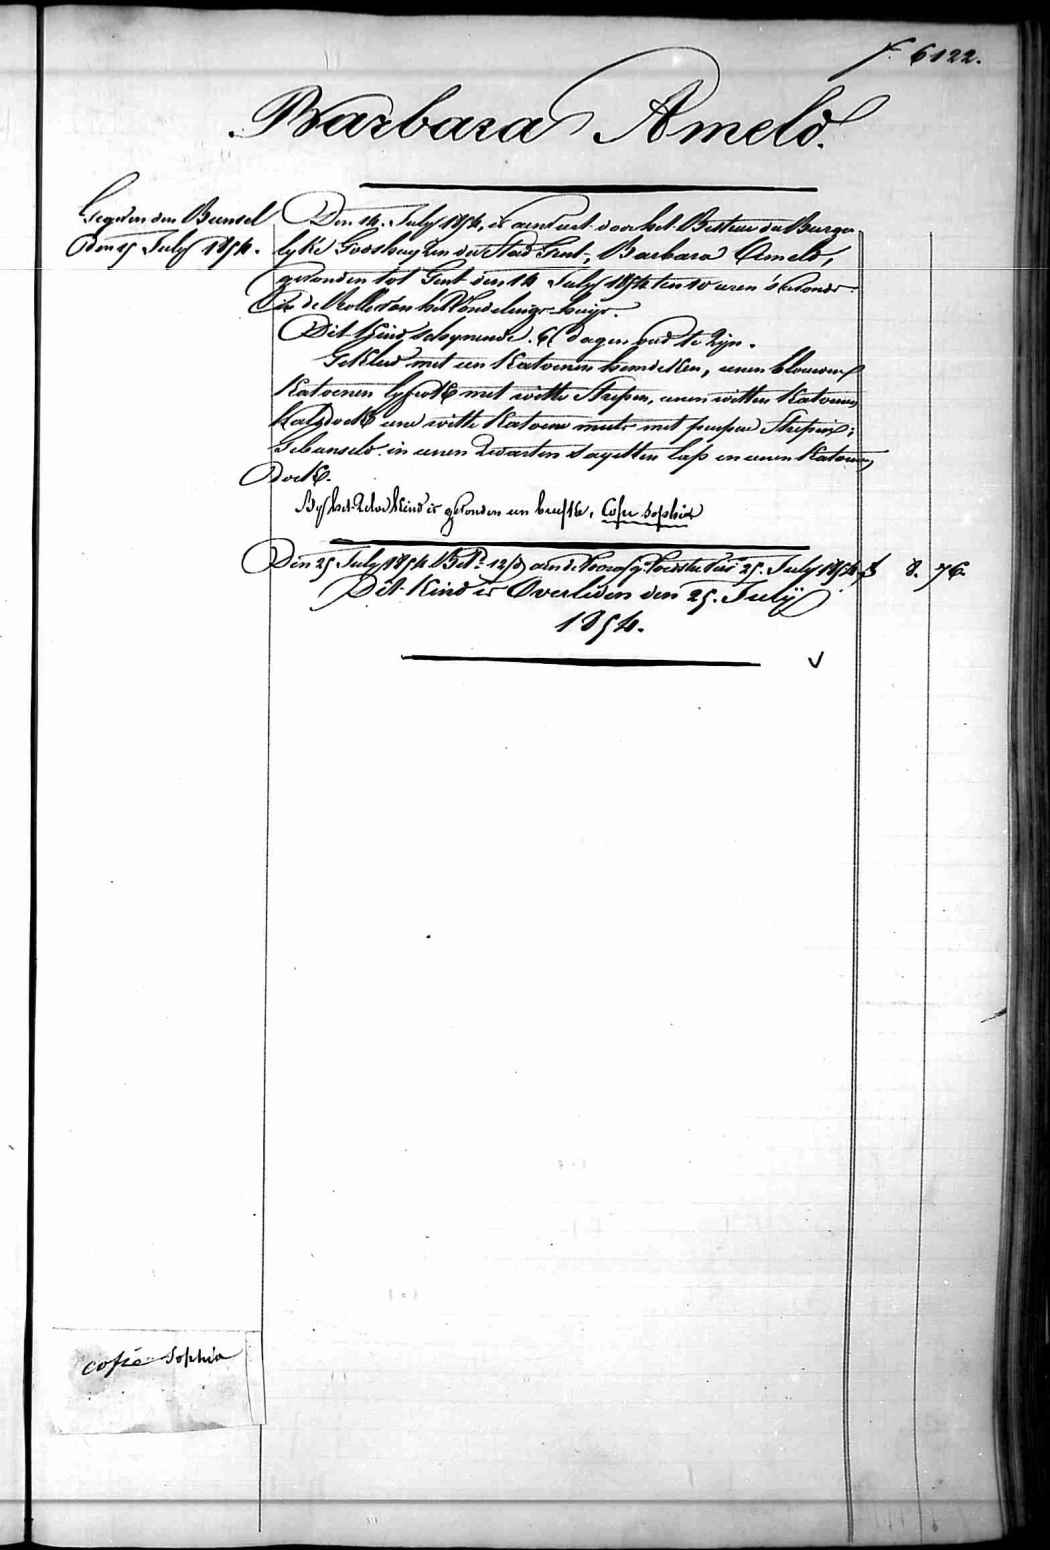 f. 6122.
Barbara Amelo.
Gegeven den Bunsel
den 15 July 1854.
Den 14. July 1854, is aenveert door het Bestuur der Burger
lyke Godshuyzen der Stad Gent, Barbara Amelo,
gevonden tot Gent den 14 July 1854 ten 10 uren s'avonds
in de Rolle van het Vondelings-huys.
Dit Kind schynende 6 dagen oud te zyn.
Gekleed met een Katoenen hemdeken, eenen blauwen
Katoenen lyfrok met witte Strepen, eenen witten Katoenen
halsdoek eene witte Katoene muts met purpere Strepen;
Gebunseld in eenen zwarten sayetten lap en eenen Katoenen
doek.
By het zelve Kind is gevonden een briefke, Cofie Sophia
Den 25 July 1854 Bet. 12/ aen de 25. July 1854 f 8. 76
Dit Kind is Overleden den 25. July
1854.
cofie Sophia